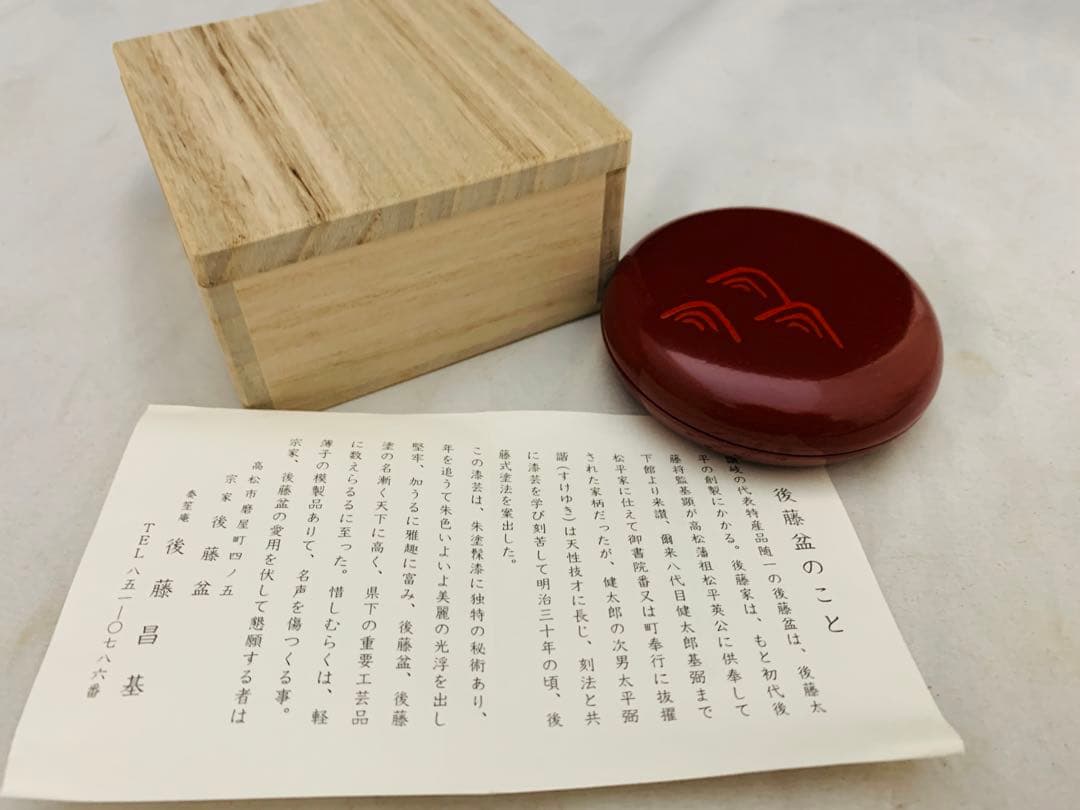 後藤盆のこと
讃岐の代表特産品随一の後藤盆は、後藤太
平の創製にかかる。後藤家は、もと初代後
藤将監基顕が高松藩祖松平英公に供奉して
下館より来讃、爾来八代目健太郎基弼まで
松平家に仕えて御書院番又は町奉行に抜擢
された家柄だったが、健太郎の次男太平弼
諧(すけゆき)は天性技才に長じ、刻法と共
に漆芸を学び刻苦して明治三十年の頃、後
藤式塗法を案出した。
この漆芸は、朱塗髹漆に独特の秘術あり、
年を追うて朱色いよいよ美麗の光浮を出し
堅牢、加うるに雅趣に富み、後藤盆、後藤
塗の名漸く天下に高く、県下の重要工芸品
に数えらるるに至った。惜しむらくは、軽
薄子の模製品ありて、名声を傷つくる事。
宗家、後藤盆の愛用を伏して懇願する者は
高松市磨屋町四ノ五
宗家 後藤盆
笙庵 後藤昌基
TEL 八五一―〇七八六番